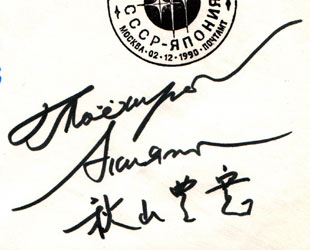 СССР-ЯПОНИЯ
МОСКВА·02-12-1990·ПОЧТАМТ
Тоёхиро
Акияма
秋山豊寛